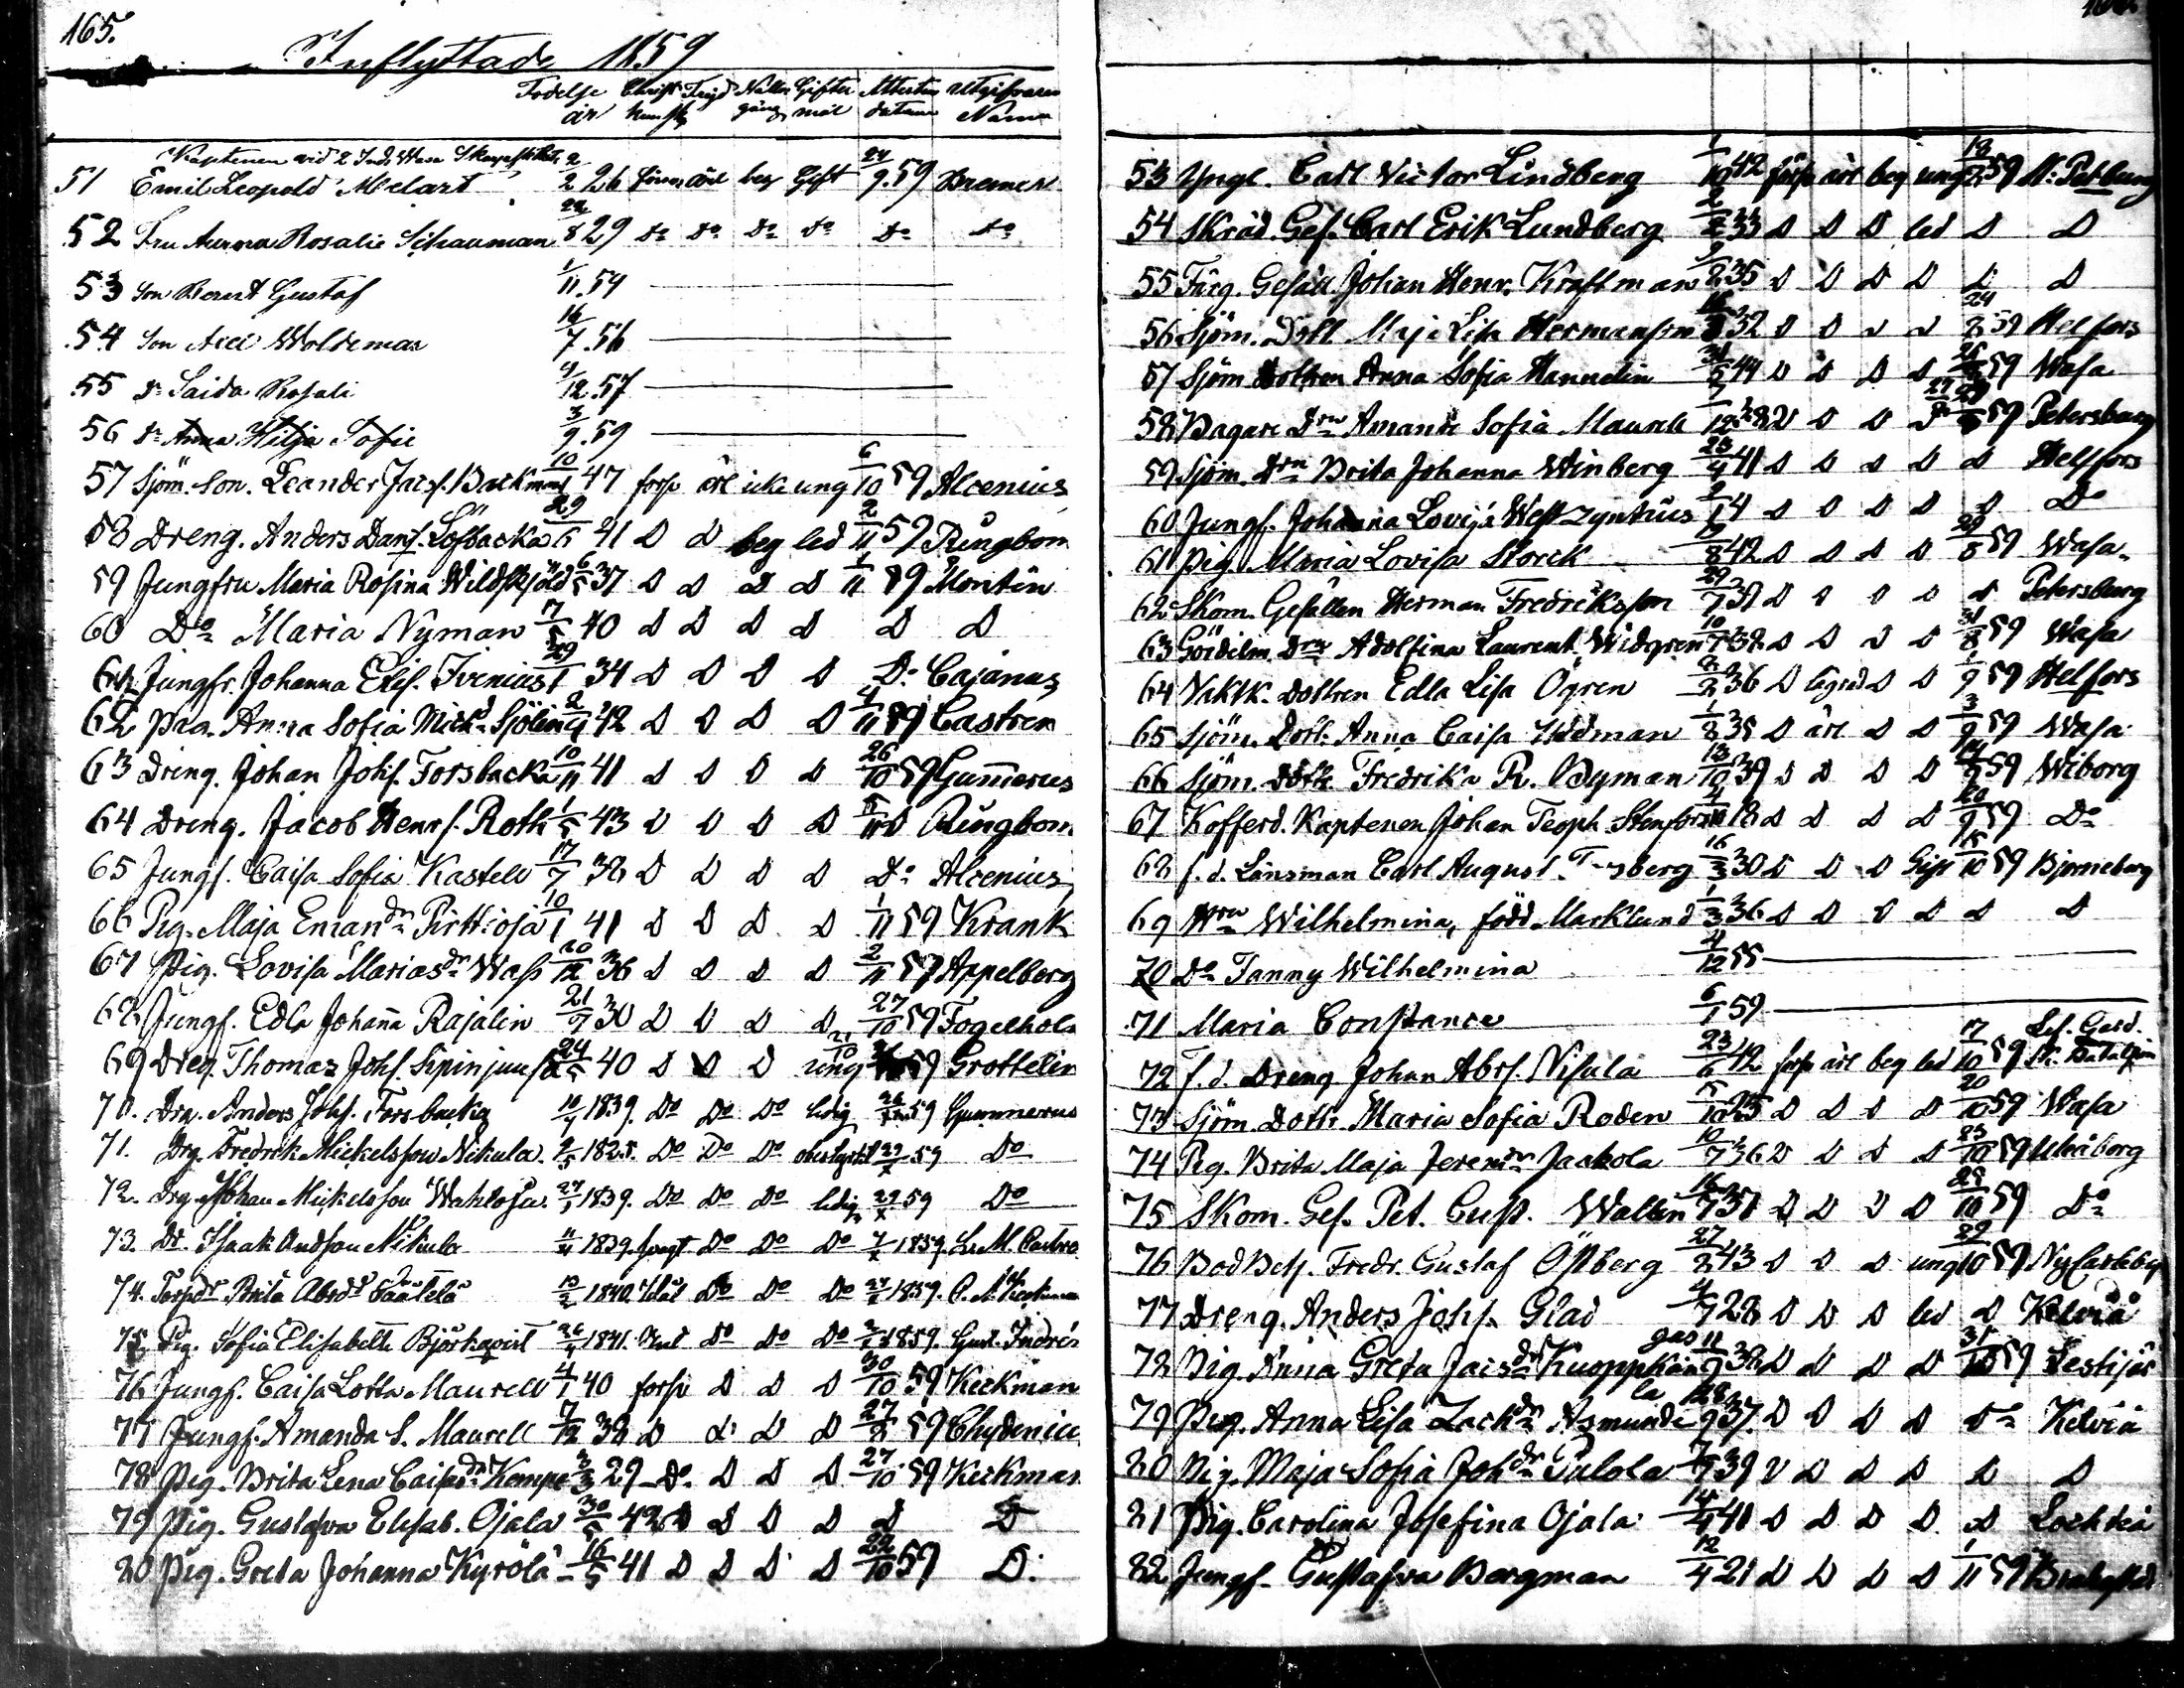 165.
Inflyttade 1859
Födelse Christ Frejd Natts Gifter Attestens Utgifvarens
år kunsk gång mål datum Namn
Kaptenen vid 2 Ind. Wasa Skarpskytte
51 Emil Leopold Melart 2/2 26 ärl beg Gift 24/9.59 Bremer
52 Fru Aurora Rosalie Schauman 22/8 29 Do Do Do Do Do Do
53 Son Bernt Gustaf 1/11.54
54 Son Axel Woldemar 16/7.56
55 Dr Saida Rosali 4/12.57
56 Dr Anna Hilja Sofie 3/9.59
57 Sjöm. Son. Leander Jacs. Backman 10/1 47 forsv ärl icke ung 6/10 59 Alcenius
58 Dreng. Anders Dans. Löfbacka 29/5 41 D D beg led 2/11 59 Ringbom
59 Jungfru Maria Rosina Wildskjöld 6/5 37 D D D D 1/11 59 Montin
60 Do Maria Nyman 17/5 40 D D D D D D
61 Jungfr. Johanna Elis. Ivenius 29/1 34 D D D D Do Cajanus
62 Pig. Anna Sofia Mickd Sjölin 2/4 42 D D D D 4/11 59 Castren
63 Dreng. Johan Johs. Forsbacka 10/11 41 D D D D 26/10 59 Gummerus
64 Dreng. Jacob Henrs. Roth 1/5 43 D D D D D Ringbom
65 Jungf. Caisa Sofia Kastell 17/7 38 D D D D Do Alcenius
66 Pig. Maja Emandr Pirttioja 10/1 41 D D D D 1/11 59 Krank
67 Pig. Lovisa Mariasdr Wass 20/12 36 D D D D 2/11 59 Appelberg
68 Jungf. Edla Johanna Rajalin 21/7 30 D D D D 27/10 59 Fogelholm
69 Dreg. Thomas Johs. 24/5 40 D D D ung 21/10 59 Grottelin
70. Drg. Anders Johs. Forsbacka 10/11 1839. Do Do Do ledig 26/10 59 Gummerus
71. Drg. Fredrik Mickelsson Nikula. 2/5 1825. Do Do Do 59 Do
72. Drg. Johan Mickelsson 1839. Do Do Do ledig 59 Do
73. Dr. Isaak Andsson Nikula 11/4 1839. Do Do Do 7/x 1859. L. M. Castre
74. Torpdr Brita Absdr 13/2 1840. Do Do Do 1859. Keckman
75. Pig. Sofia Elisabeth Björkqvist 26/4 1841. Do Do 1859.
76 Jungf. Caisa Lotta Maurell 4/1 40 forsv D D D 30/10 59 Keckman
77 Jungf. Amanda S. Maurell 7/12 38 D D D D 27/2 59 Chydenius
78 Pig. Brita Lena Caisadr Kempe 3/3 29 Do D D D 27/10 59 Keckman
79 Pig. Gustafva Elisab. Ojala 30/5 42 D D D D D D
20 Pig. Greta Johanna Kyrölä 16/5 41 D D D D 22/10 59 D.
53 Yngl. Carl Victor Lindberg 1/10 42 försv ärl beg ung 59 St. Petburg
54 Skräd. Ges. Carl Erik Lundberg 33 D D D led D D
55 Färg. Gesäll. Johan Henr. Kraftman 35 D D D D D D
56 Sjöm. Dott. Maja Lisa Hermanson 32 D D D D 24/8 59 Helfors
57 Sjöm. Dottren Anna Sofia Hannelin 44 D D D D 59 Wasa
58 Bagare Drn Amanda Sofia Maurell D D D 59 Petersburg
59 Sjöm. Drn Brita Johanna Winberg 23/4 41 D D D D D Helfors
60 Jungf. Johanna Lovisa Westzynthius D D D D D Do
61 Pig. Maria Lovisa Storck 8 42 D D D D 29/8 59 Wasa
62 Skom. Gesällen Herman Fredriksson 29/7 38 D D D D D Petersburg
63 Drn Adolfina Laurent. Widgren 10/7 38 D D D D 31/8 59 Wasa
64 Vaktk. Dottren Edla Lisa Ögren 2/2 36 D lagerd D D 1/9 59 Helfors
65 Sjöm. Dott. Anna Caisa Widman 1/8 35 D ärl D D 3/9 59 Wasa
66 Sjöm. Dott. Fredrika R. Nyman 13/10 39 D D D D 14/9 59 Wiborg
67 Kofferd. Kaptenen Johan Teoph. Stenfors 18 D D D D 20/9 59 Do
68 f. d. Länsman Carl August 16/3 30 D D D Gift 15/10 59 Bjorneborg
69 Hru Wilhelmina, född Marklund 1/3 36 D D D D D D
70 Do Fanny Wilhelmina 4/12 55
71 Maria Constance 6/1 59
72 f. d. Dreng Johan Abrs. Nisula 23/6 42 forsv ärl beg led 17/10 59 Lif. Gard. Bataljon
73 Sjöm. Dottr. Maria Sofia Roden 5/10 25 D D D D 20/10 59 Wasa
74 Pig. Brita Maja Jeremdr Jackola 10/7 36 D D D D 23/10 59 Uleåborg
75 Skom. Ges. Pet. Gust. Wallin 16/7 37 D D D D 59 Do
76 BodBetj. Fredr. Gustaf Östberg 27/2 43 D D D ung 29/10 59 Nycarleby
77 Dreng. Anders Johs. Glad 4/7 28 D D D led D Kelviå
78 Pig. Anna Greta Jacsdr Kuoppkan gas 11/9 32 D D D D 31/10 59 Lestijär
79 Pig. Anna Lisa Zackdr Asmundi la 28/9 37. D D D D Do Kelviå
80 Pig. Maja Sofia Johdr Pulola 7/9 39 D D D D D D
81 Pig. Carolina Josefina Ojala 41 D D D D D Lochteå
82 Jungf. Gustafva Borgman 12/4 21 D D D D 1/11 59 Brahestad